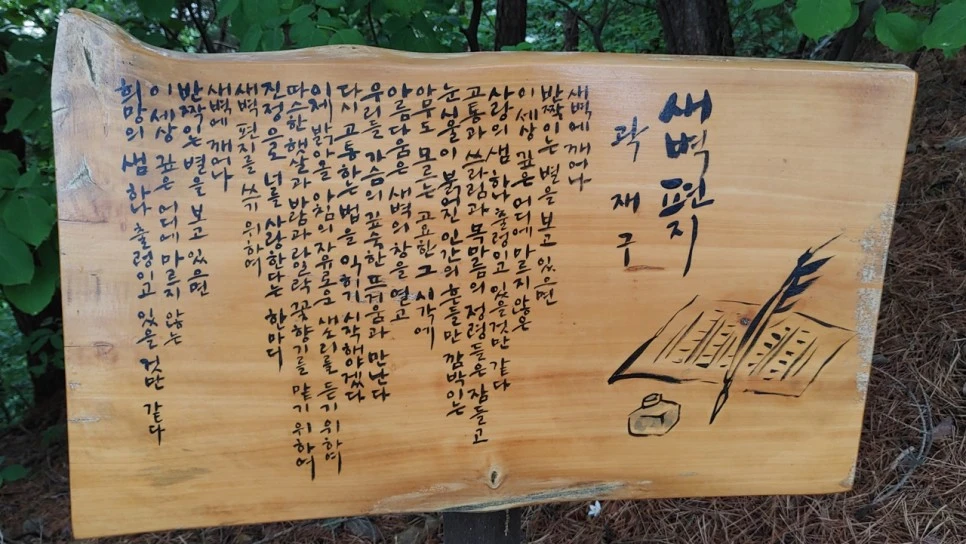 새벽편지
곽재구
새벽에 깨어나
반짝이는 별을 보고 있으면
이 세상 깊은 어디에 마르지 않은
사랑의 샘 하나 출렁이고 있을것만 같다
고통과 쓰라림과 목마름의 정령들은 잠들고
눈시울이 붉어진 인간의 혼들만 깜박이는
아무도 모르는 고요한 그 시각에
아름다움은 새벽의 창을 열고
우리들 가슴의 깊숙한 뜨거움과 만난다
다시 고통하는 법을 익히기 시작해야겠다
이제 밝아올 아침의 자유로운 새소리를 듣기 위하여
따스한 햇살과 바람과 라일락 꽃향기를 맡기 위하여
진정으로 너를 사랑한다는 한마디
새벽 편지를 쓰기 위하여
새벽에 깨어나
반짝이는 별을 보고 있으면
이 세상 깊은 어디에 마르지 않는
희망의 샘 하나 출렁이고 있을 것만 같다